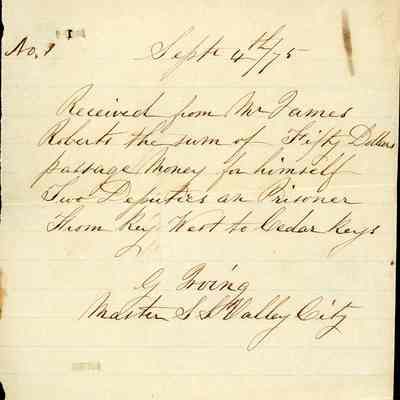 No. 1
Sept 4th/75
Received from Mr James
Roberts the sum of Fifty Dollars
passage Money for himself
Two Deputies an Prisoner
From Key West to Cedar Keys
G Irving
Master S S Valley City